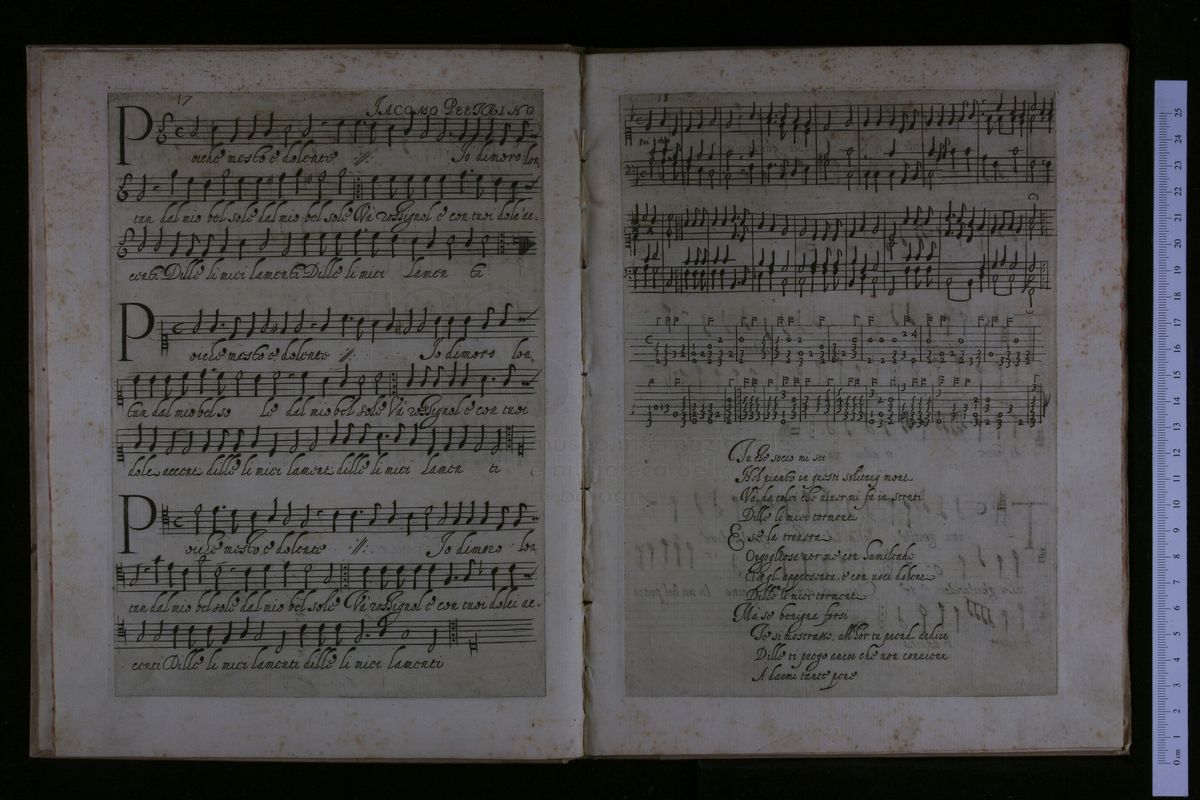 17
IACOMO PEETRINO
Poiche mesto e dolente :||: Io dimoro lon,
tan dal mio bel sole dal mio bel sole Và rossignol e con tuoi dolc' ac=
centi Dille li miei lamenti Dille li miei lamen ti
Poiche mesto e dolente :||: Io dimoro lon,
tan dal mio bel so le dal mio bel sole Và rossignol e con tuoi
dolc accenti dille li miei lament dille li miei lamen ti
Poiche mesto e dolente :||: Io dimoro lon
tan dal mio bel sole dal mio bel sole Và rossignol e con tuoi dolci ac=
centi Dille li miei lamenti dille li miei lamenti
18
Tu che socio mi sei
Nel pianto in questi solitarij mont
Và da colei che viver mi fa in stenti
Dille li miei torment
E se la troverai
Orgogliosa ver me con humiltade
gl' appresenta, e con voci dolent
Dille li miei torment
Ma se benigna forsi
Te si mostrasse, allhor tu pien d
Dille ti prego ancor che non conviene
A darmi tante pene